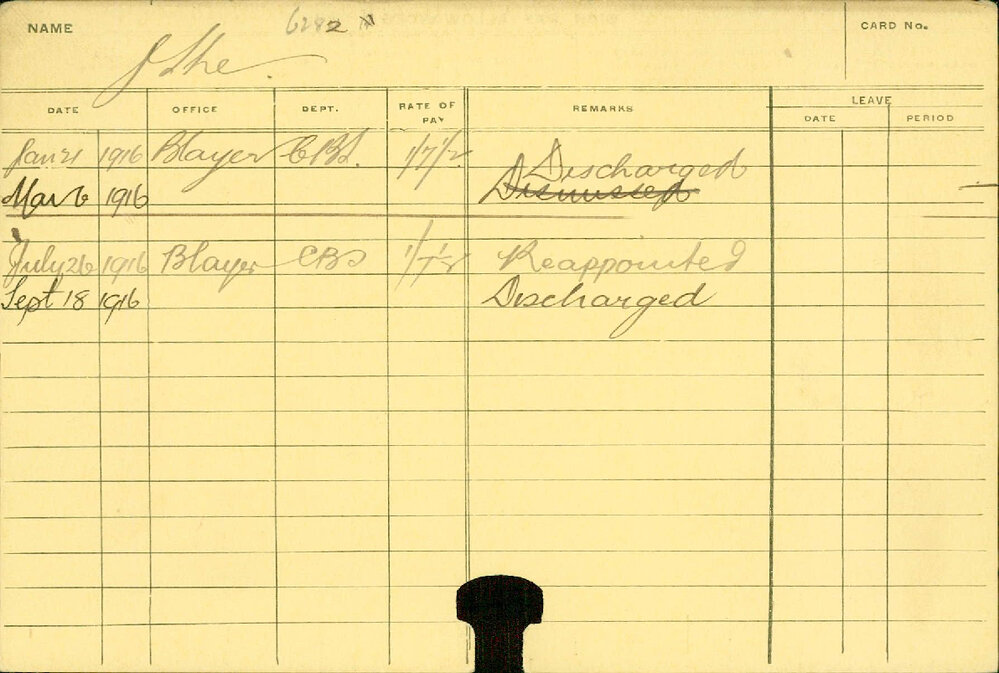 NAME 6282 N CARD No.
J Lhe
DATE OFFICE DEPT. RATE OF PAY REMARKS LEAVE
DATE PERIOD
Jan 21 1916 Blayer CBS. 1/7/2 Discharged
Mar 6 1916 Dismissed
July 26 1916 Blayer CBS 1/7/2 Reappointed
Sept 18 1916 Discharged